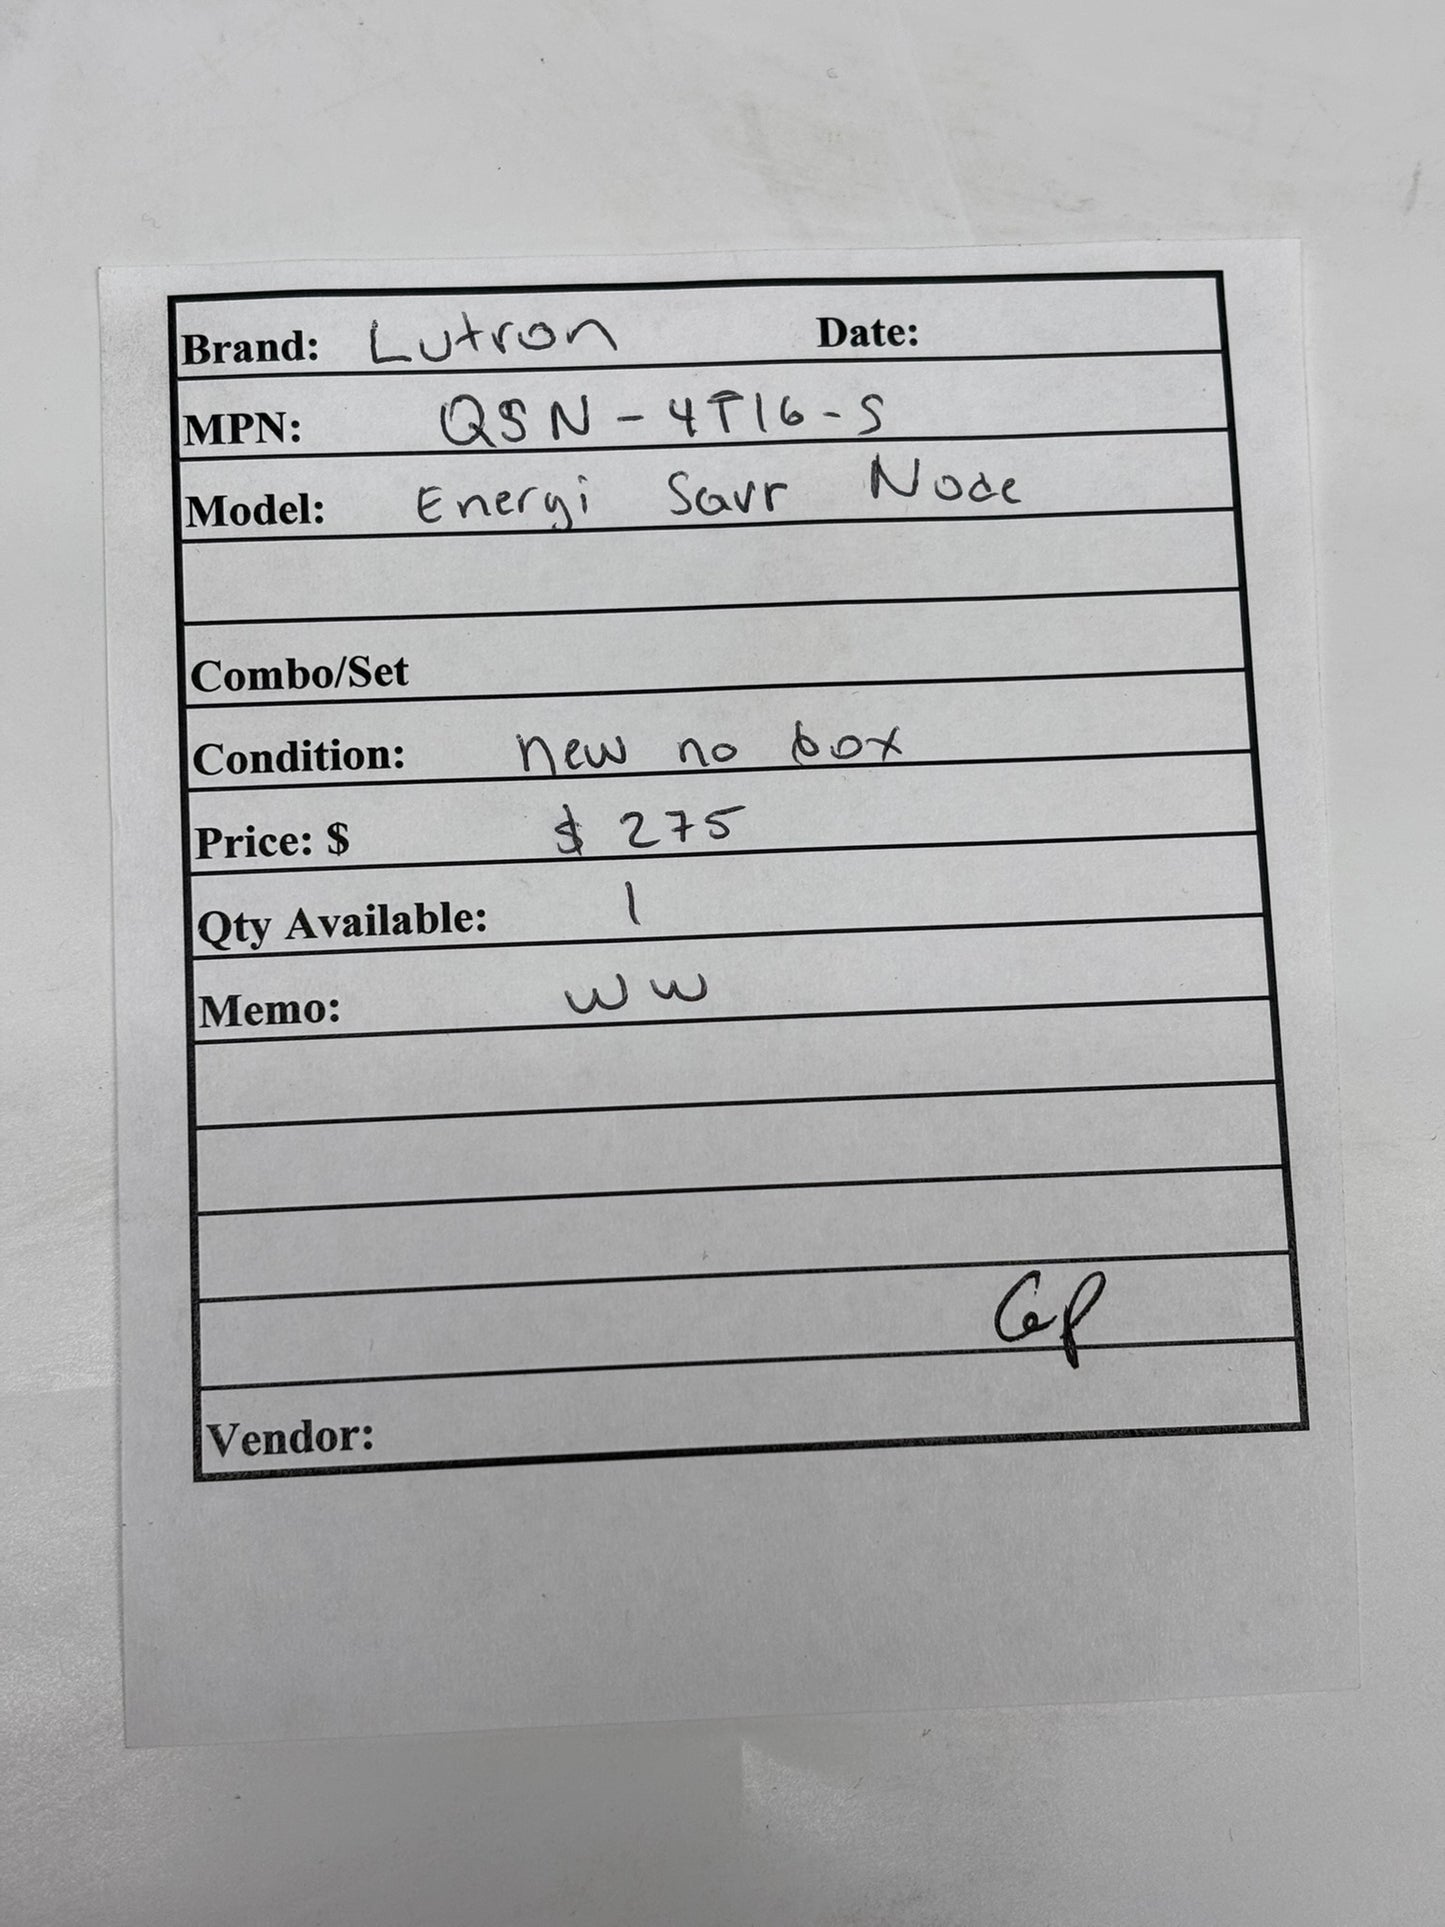 Brand: Lutron Date:
MPN: QSN-4T16-S
Model: Energi Savr Node
Combo/Set
Condition: new no box
Price: $ $275
Qty Available: 1
Memo: WW
Vendor: